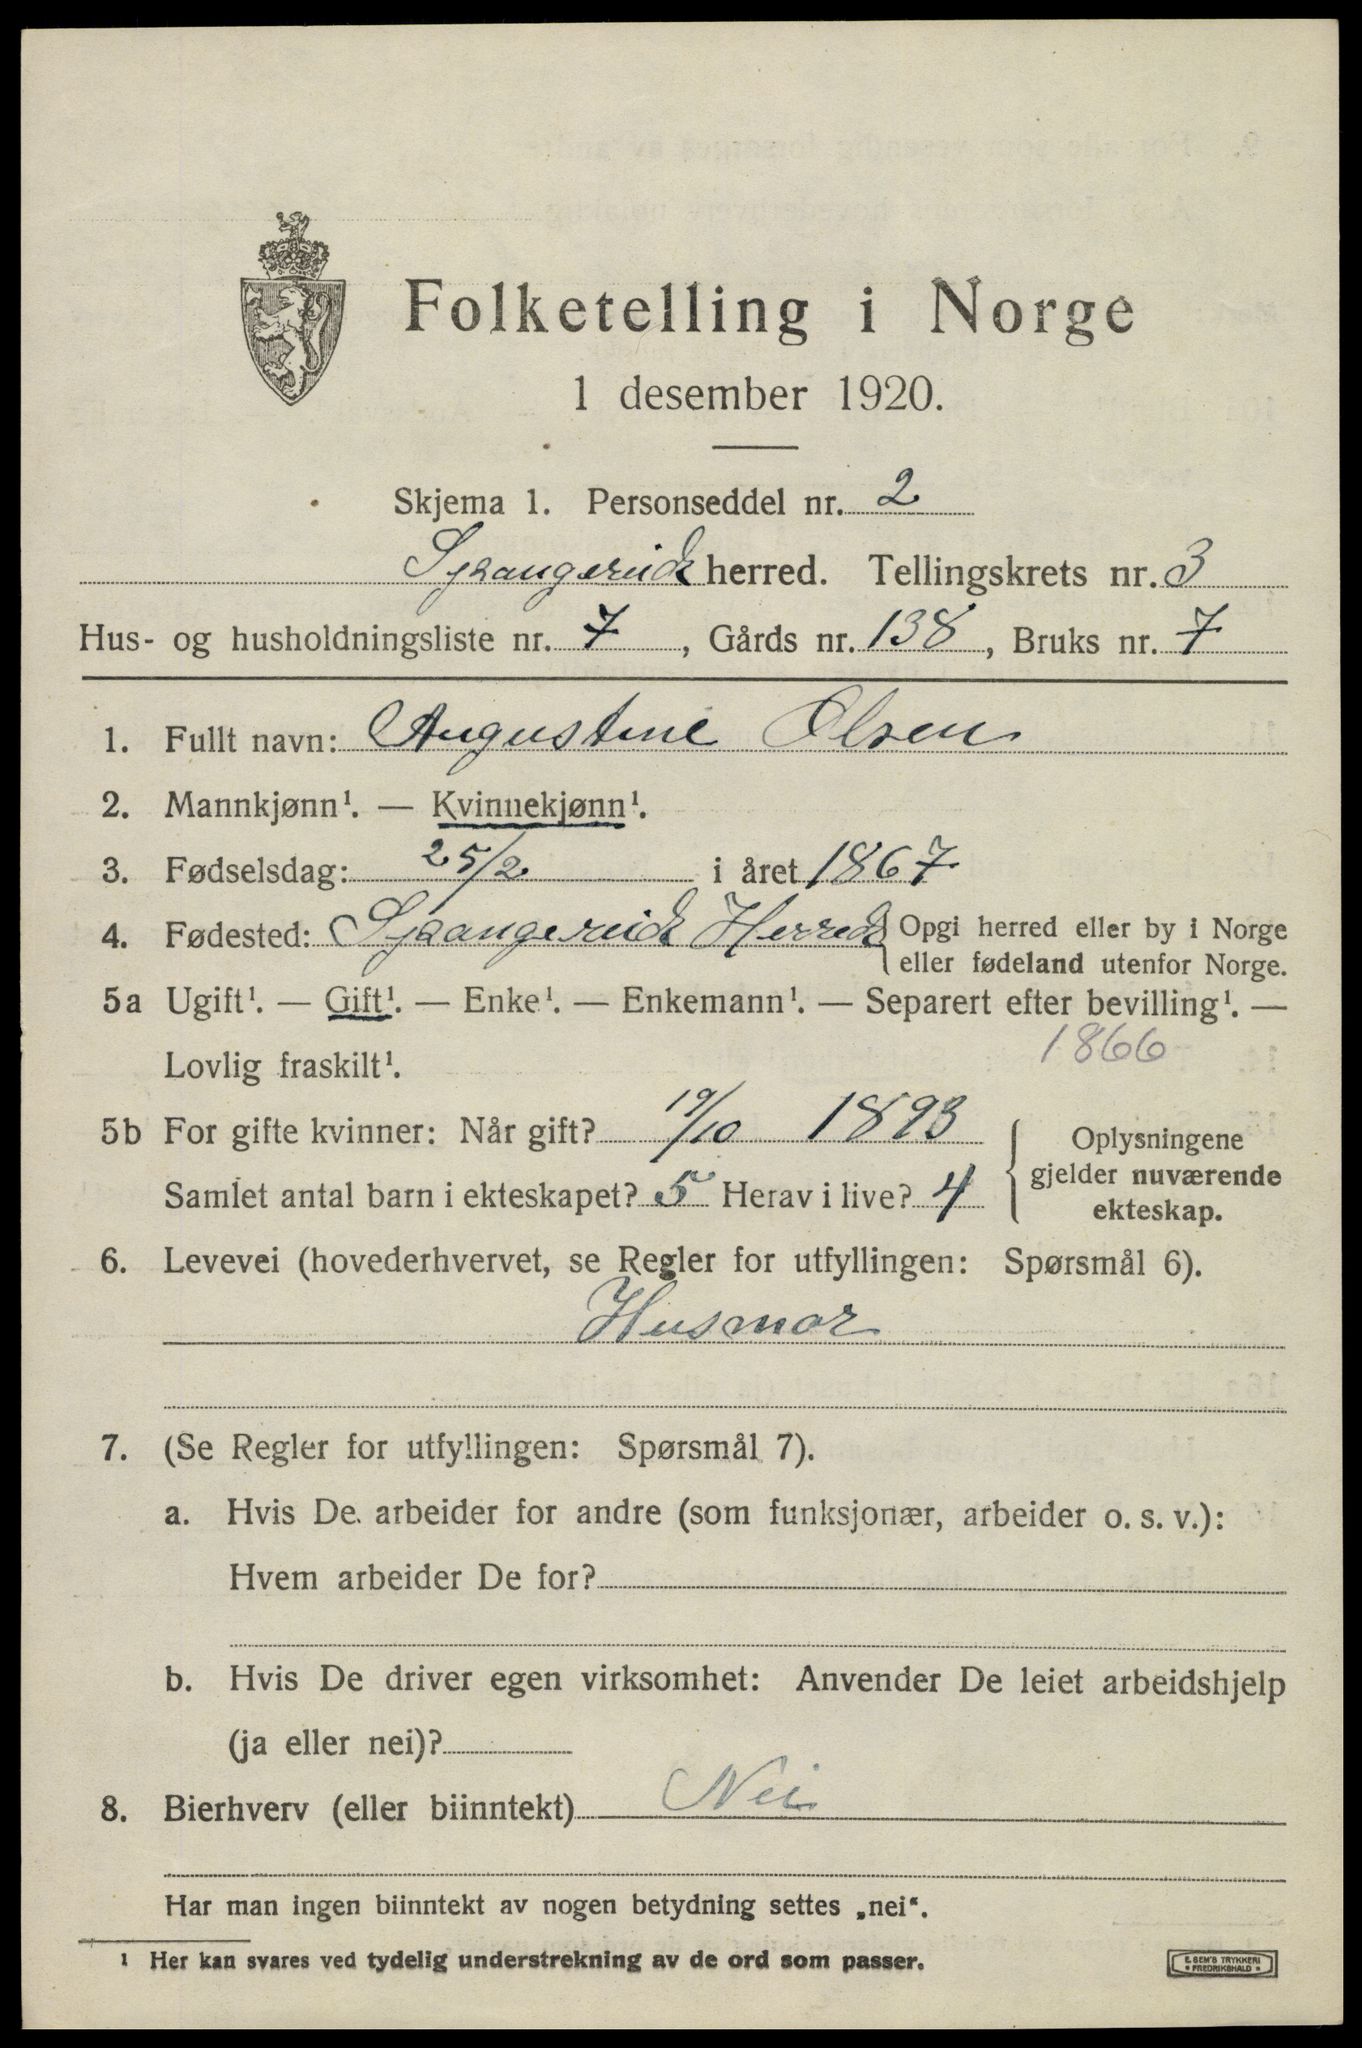 Folketelling i Norge
1 desember 1920.
Skjema 1. Personseddel nr. 2
Spangereid herred. Tellingskrets nr. 3
Hus- og husholdningsliste nr. 7, Gårds nr. 138, Bruks nr. 7
1. Fullt navn: Augustine Olsen
2. Mannkjønn¹. — Kvinnekjønn¹.
3. Fødselsdag: 25/2 i året 1867
4. Fødested: Spangereid Herred { Opgi herred eller by i Norge
eller fødeland utenfor Norge.
5a Ugift¹. — Gift¹. — Enke¹. — Enkemann¹. — Separert efter bevilling¹. —
Lovlig fraskilt¹. 1866
5b For gifte kvinner: Når gift? 19/10 1893 { Oplysningene
gjelder nuværende
ekteskap.
Samlet antal barn i ekteskapet? 5 Herav i live? 4
6. Levevei (hovederhvervet, se Regler for utfyllingen: Spørsmål 6).
Husmor
7. (Se Regler for utfyllingen: Spørsmål 7).
a. Hvis De arbeider for andre (som funksjonær, arbeider o. s. v.):
Hvem arbeider De for?
b. Hvis De driver egen virksomhet: Anvender De leiet arbeidshjelp
(ja eller nei)?
8. Bierhverv (eller biinntekt) Nei
Har man ingen biinntekt av nogen betydning settes „nei“.
¹ Her kan svares ved tydelig understrekning av de ord som passer.
E. SEM'S TRYKKERI
* FREDRIKSHALD *